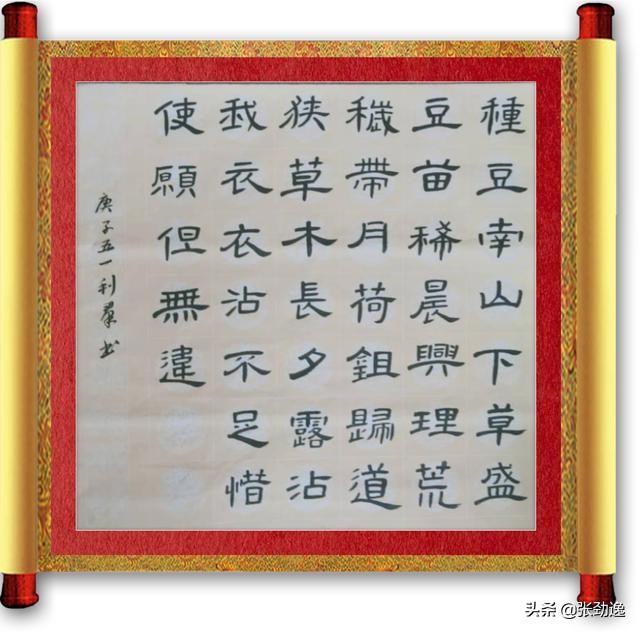 種豆南山下草盛
豆苗稀晨興理荒
穢帶月荷鉏歸道
狭草木長夕露沾
我衣衣沾不足惜
使願但無違
庚子五一利羣书
头条 @张劲逸